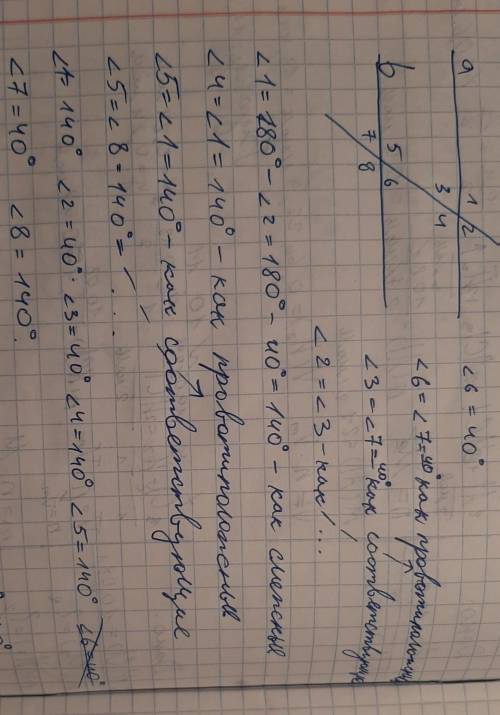 a
1 2
3 4
b
5 6
7 8
∠6 = 40°
∠6 = ∠7 = 40° как противоположные
∠3 = ∠7 = 40° как соответствующие
∠2 = ∠3 - как / ...
∠1 = 180° - ∠2 = 180° - 40° = 140° - как смежные
∠4 = ∠1 = 140° - как противоположные
∠5 = ∠1 = 140° - как соответствующие
∠5 = ∠8 = 140° = / ...
∠1 = 140° ∠2 = 40° ∠3 = 40° ∠4 = 140° ∠5 = 140° ∠6 = 40°
∠7 = 40° ∠8 = 140°.